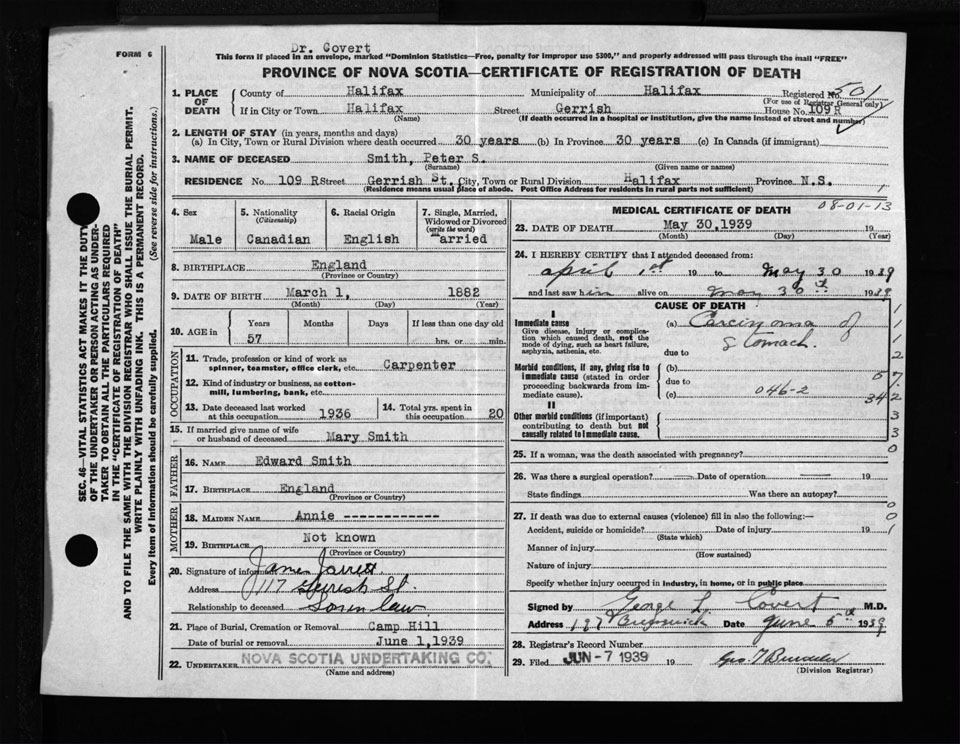 Dr. Covert
FORM 6
This form if placed in an envelope, marked "Dominion Statistics—Free, penalty for improper use $300," and properly addressed will pass through the mail "FREE"
PROVINCE OF NOVA SCOTIA—CERTIFICATE OF REGISTRATION OF DEATH
1. PLACE OF DEATH
County of Halifax Municipality of Halifax Registered No. 501
(For use of Registrar General only)
If in City or Town Halifax Street Gerrish House No. 109 R
(Name) (If death occurred in a hospital or institution, give the name instead of street and number)
2. LENGTH OF STAY (in years, months and days)
(a) In City, Town or Rural Division where death occurred 30 years (b) In Province 30 years (c) In Canada (if immigrant)
3. NAME OF DECEASED Smith, Peter S.
(Surname) (Given name or names)
RESIDENCE No. 109 R Street Gerrish St. City, Town or Rural Division Halifax Province N.S.
(Residence means usual place of abode. Post Office Address for residents in rural parts not sufficient)
SEC. 46—VITAL STATISTICS ACT MAKES IT THE DUTY
OF THE UNDERTAKER OR PERSON ACTING AS UNDER-
TAKER TO OBTAIN ALL THE PARTICULARS REQUIRED
IN THE "CERTIFICATE OF REGISTRATION OF DEATH"
AND TO FILE THE SAME WITH THE DIVISION REGISTRAR WHO SHALL ISSUE THE BURIAL PERMIT.
WRITE PLAINLY WITH UNFADING INK. THIS IS A PERMANENT RECORD.
Every item of Information should be carefully supplied. (See reverse side for instructions.)
4. Sex
Male
5. Nationality
(Citizenship)
Canadian
6. Racial Origin
English
7. Single, Married,
Widowed or Divorced
(write the word)
Married
8. BIRTHPLACE England
(Province or Country)
9. DATE OF BIRTH March 1, 1882
(Month) (Day) (Year)
10. AGE in
Years Months Days If less than one day old
57 hrs. or min.
OCCUPATION
11. Trade, profession or kind of work as
spinner, teamster, office clerk, etc. Carpenter
12. Kind of industry or business, as cotton-
mill, lumbering, bank, etc.
13. Date deceased last worked
at this occupation 1936
14. Total yrs. spent in
this occupation 20
15. If married give name of wife
or husband of deceased Mary Smith
FATHER
16. NAME Edward Smith
17. BIRTHPLACE England
(Province or Country)
MOTHER
18. MAIDEN NAME Annie -------------
19. BIRTHPLACE Not known
(Province or Country)
20. Signature of informant Jarrett
Address 117 Gerrish St.
Relationship to deceased Son in law
21. Place of Burial, Cremation or Removal Camp Hill
Date of burial or removal June 1, 1939
22. UNDERTAKER NOVA SCOTIA UNDERTAKING CO.
(Name and address)
1
08-01-13
MEDICAL CERTIFICATE OF DEATH
23. DATE OF DEATH May 30, 1939 19
(Month) (Day) (Year)
24. I HEREBY CERTIFY that I attended deceased from:
april 1st 19 to May 30 1939
and last saw him alive on May 30th 1939
CAUSE OF DEATH
I
Immediate cause
Give disease, injury or complica-
tion which caused death, not the
mode of dying, such as heart failure,
asphyxia, asthenia, etc.
(a) Carcinoma of
Stomach.
due to
Morbid conditions, if any, giving rise to
immediate cause (stated in order
proceeding backwards from im-
mediate cause).
(b)
due to
(c) 046-2
II
Other morbid conditions (if important)
contributing to death but not
causally related to immediate cause.
1
1
1
2
5 7.
34 2
3
3
0
25. If a woman, was the death associated with pregnancy?
26. Was there a surgical operation? Date of operation 19
State findings Was there an autopsy?
0
0
27. If death was due to external causes (violence) fill in also the following:—
Accident, suicide or homicide? Date of injury 19
1
(State which)
Manner of injury
(How sustained)
Nature of injury
Specify whether injury occurred in industry, in home, or in public place
Signed by George L. Covert M.D.
Address 127 Brunswick Date June 5th 1939
28. Registrar's Record Number
29. Filed JUN -7 1939 19
(Division Registrar)